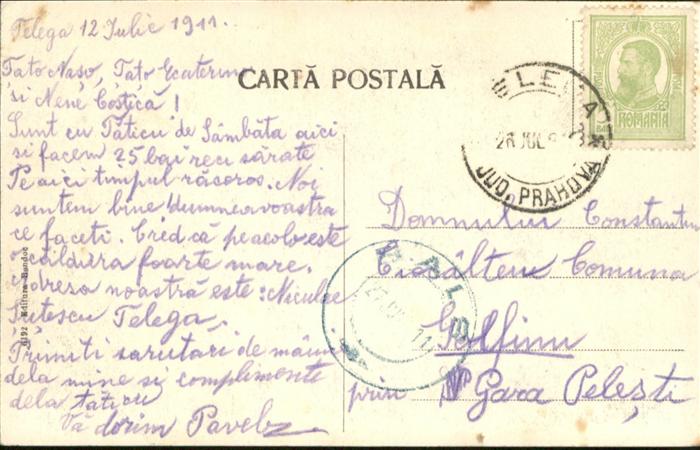 Telega 12 Iulie 1911.
Tato Nașo, Tato Ecaterino
și Nene Costică!
Sunt cu Tăticu de Sâmbăta aici
si facem 25 bai reci sărate
Pe aici timpul răcoros. Noi
suntem bine dumneavoastra
ce faceti. Cred că pe acolo este
o căldura foarte mare.
adresa noastră este: Niculae
Telega.
Primiti sarutari de mâini
dela mine si complimente
dela taticu
Vă dorim Pavel
CARTĂ POSTALĂ
6192 Editura
TELEGA
28 JUL
JUD. PRAHOVA
BANI 5
ROMANIA
Domnului Constantin
Ciocâlteu Comuna
Golfinu
prin Gara Pelești
27 11